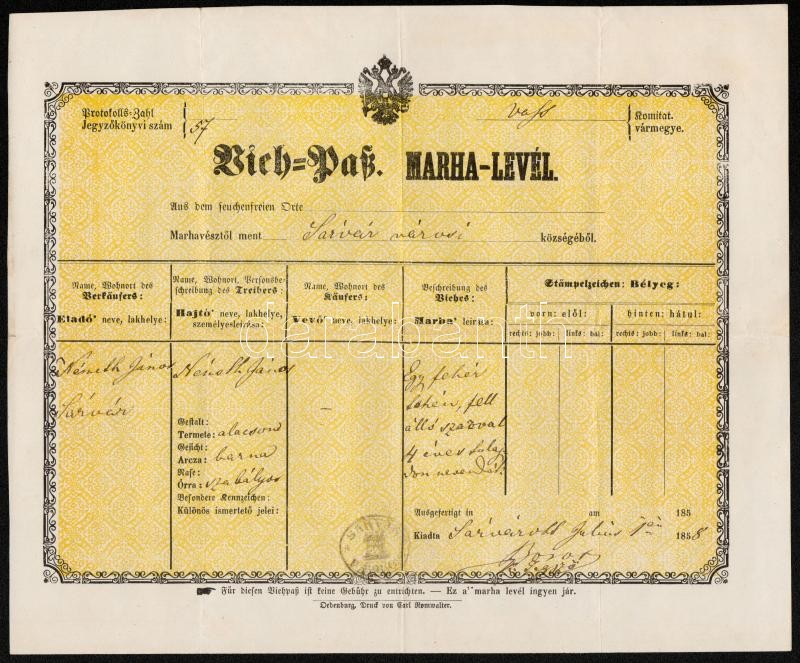 Protokolls-Zahl
Jegyzőkönyvi szám
57
vass
Komitat.
vármegye.
Vieh=Paß. MARHA-LEVÉL.
Aus dem seuchenfreien Orte
Marhavésztől ment Sárvár városi községéből.
Name, Wohnort des
Verkäufers:
Eladó' neve, lakhelye:
Name, Wohnort, Personsbe-
schreibung des Treibers:
Hajtó' neve, lakhelye,
személyesleirása:
Name, Wohnort des
Käufers:
Vevő' neve, lakhelye:
Beschreibung des
Viehes:
Marha' leirása:
Stämpelzeichen: Bélyeg:
vorn: elől:
hinten: hátul:
rechts: jobb:
links: bal:
rechts: jobb:
links: bal:
Németh János
Sárvár
Németh János
Gestalt:
Termete: alacson
Gesicht:
Arcza: barna
Nase:
Órra: szabályos
Besondere Kennzeichen:
Különös ismertető jelei:
–
Egy fehér
tehén, fell
álló szarval
4 éves
Ausgefertigt in am 185
Kiadta Sárvárott Julius 1 én 1858
SÁRVÁR
Für diesen Viehpaß ist keine Gebühr zu entrichten. — Ez a' marha levél ingyen jár.
Oedenburg, Druck von Carl Romwalter.
darabanth